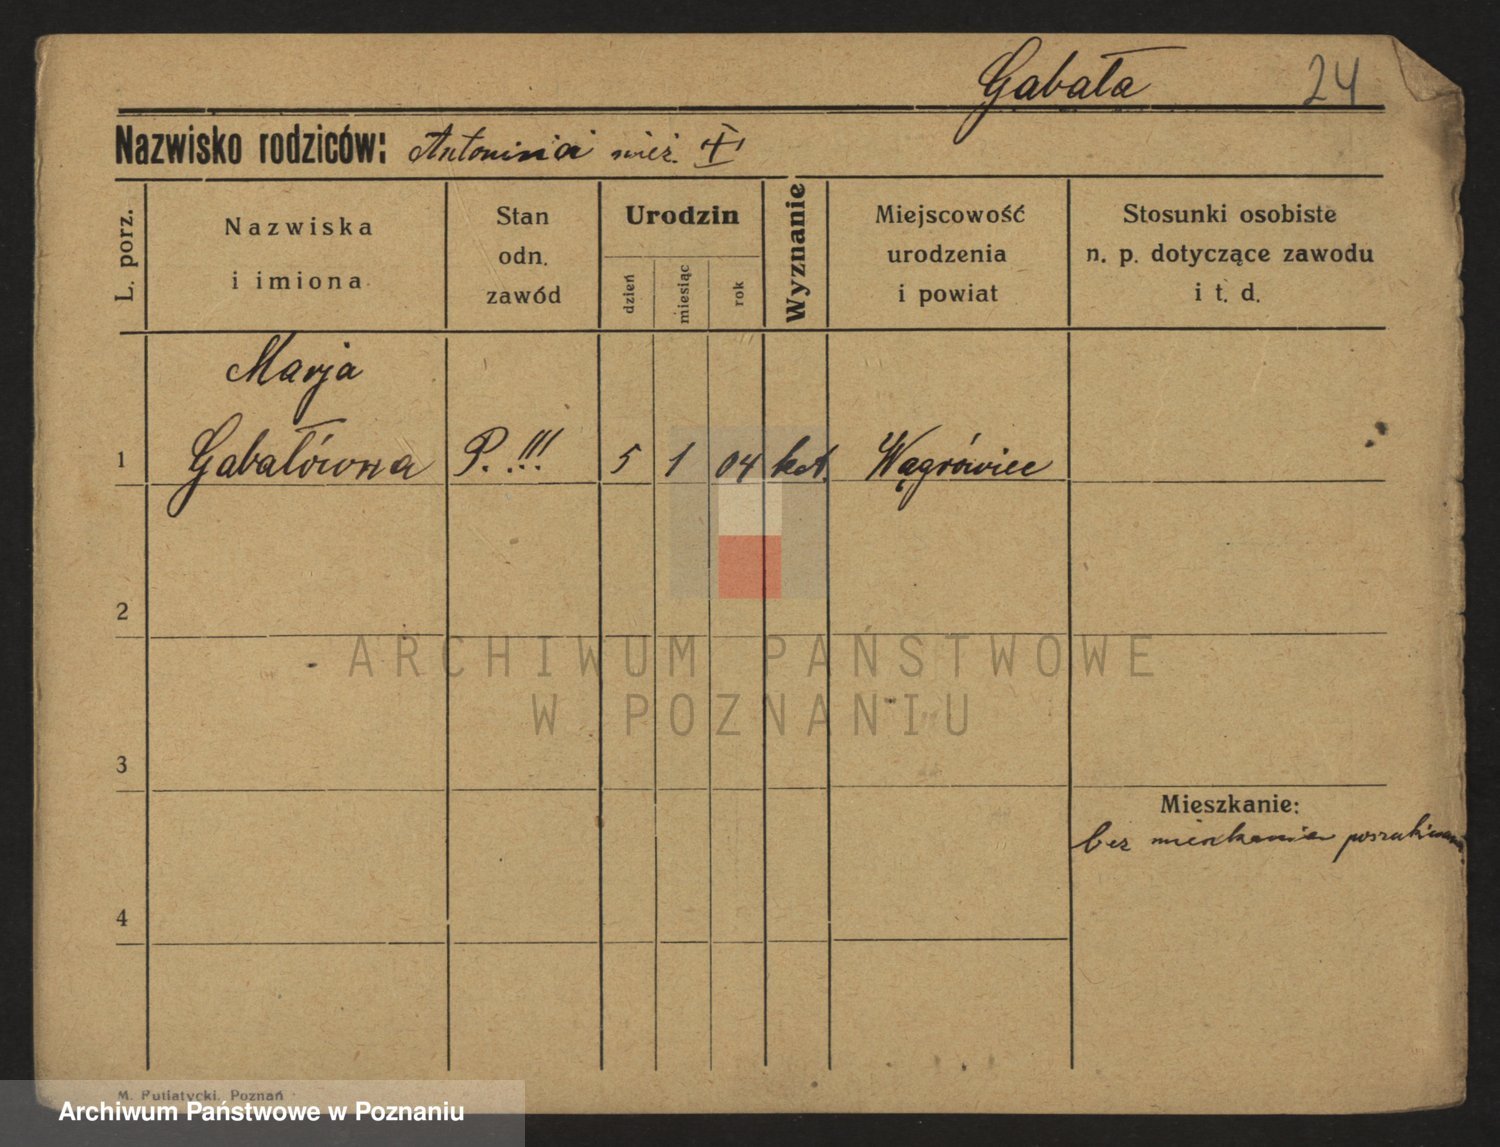 Gabała 24
Nazwisko rodziców: Antonina
L. porz.
Nazwiska
i imiona
Stan
odn.
zawód
Urodzin
dzień
miesiąc
rok
Wyznanie
Miejscowość
urodzenia
i powiat
Stosunki osobiste
n. p. dotyczące zawodu
i t. d.
Marja
1 Gabałówna P. !!! 5 1 04 kat. Wągrówiec
2
3
Mieszkanie:
bez mieszkania
4
ARCHIWUM PAŃSTWOWE
W POZNANIU
M. Putiatycki, Poznań
Archiwum Państwowe w Poznaniu